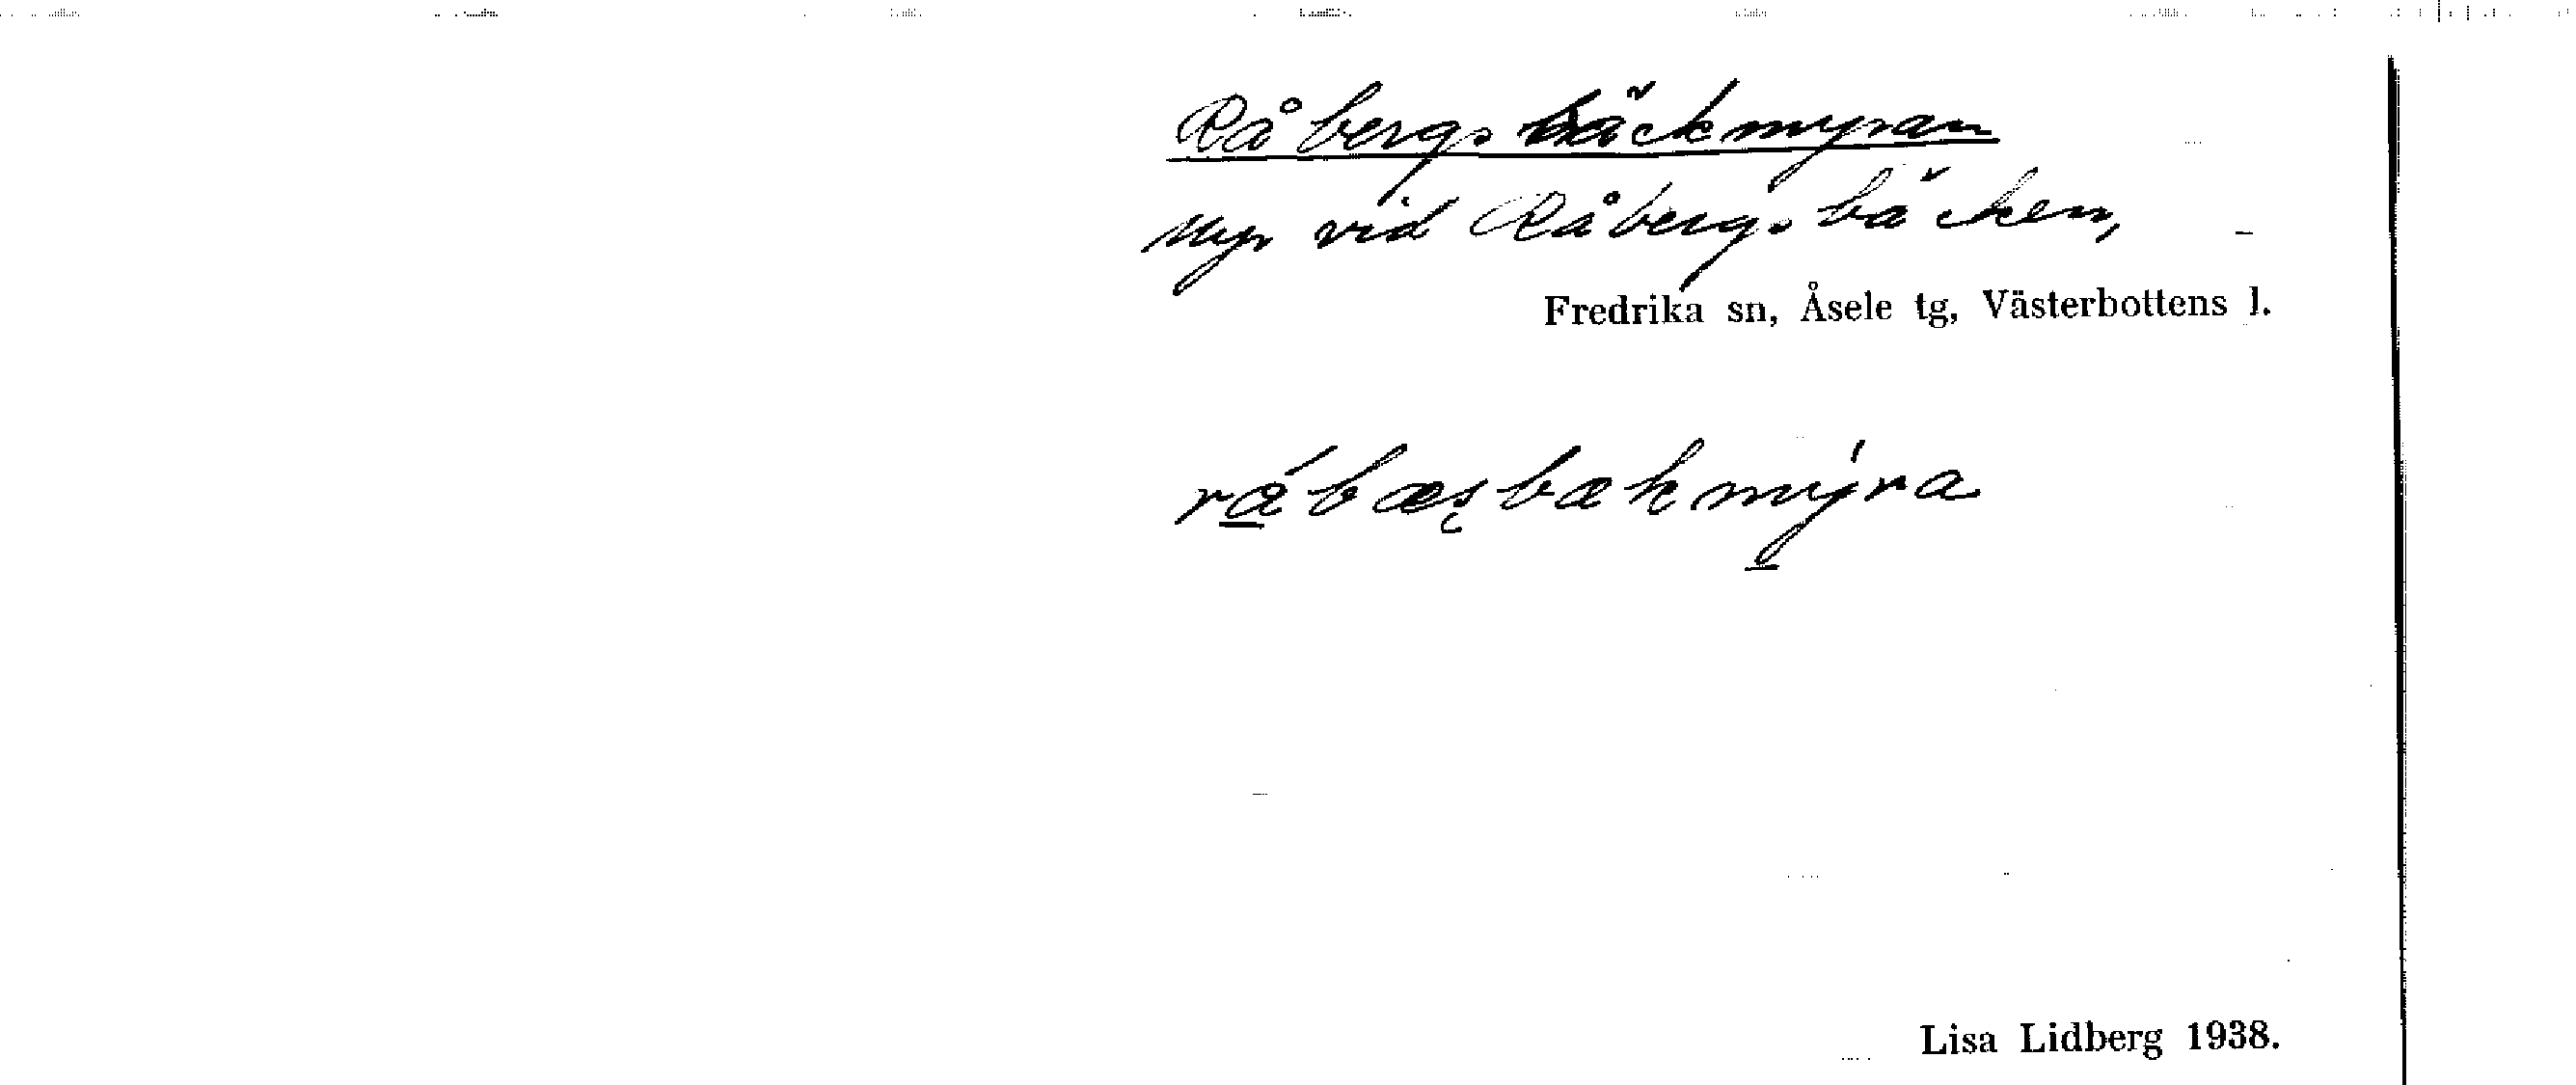 Råbergsbäckmyran
Myr vid Råbergsbäcken,
Fredrika sn, Åsele tg, Västerbottens l.
rábæşbækmýra
Lisa Lidberg 1938.